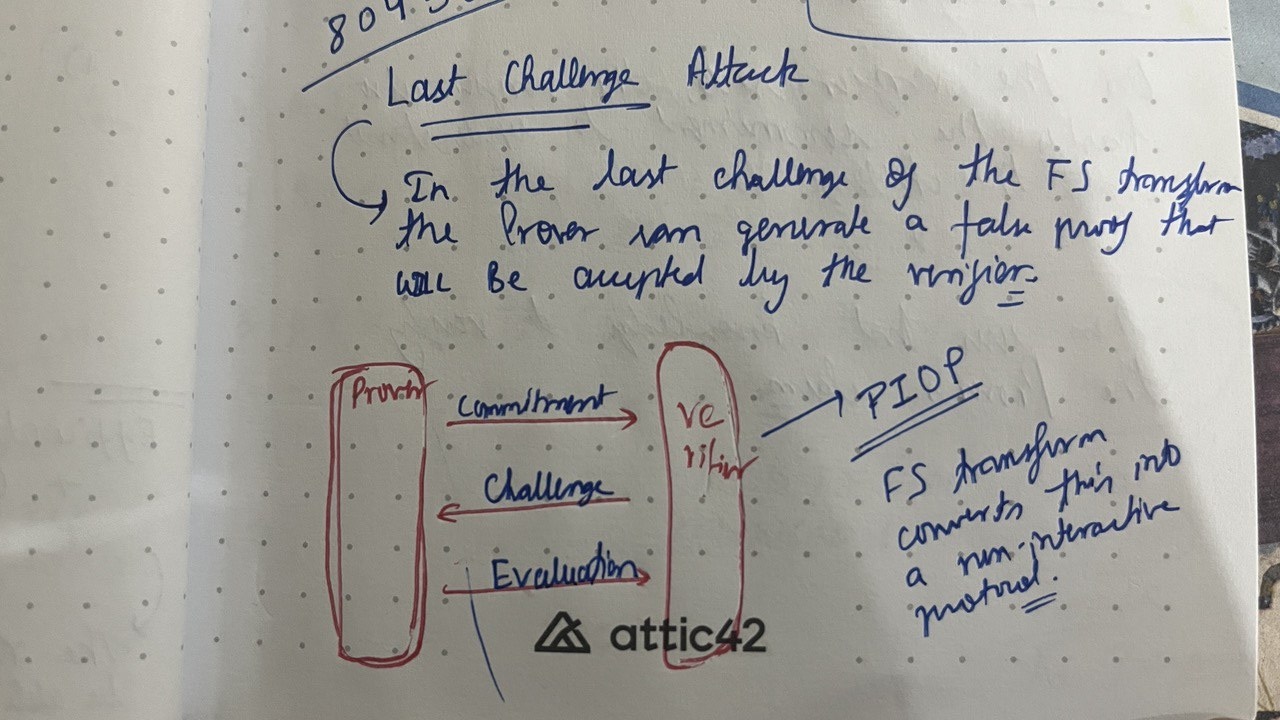 Last Challenge Attack
In the last challenge of the FS transform
the Prover can generate a false proof that
will Be accepted by the verifier.
Prover
Commitment
Challenge
Evaluation
ve
rifier
PIOP
FS transform
converts this into
a non-interactive
protocol.
attic42